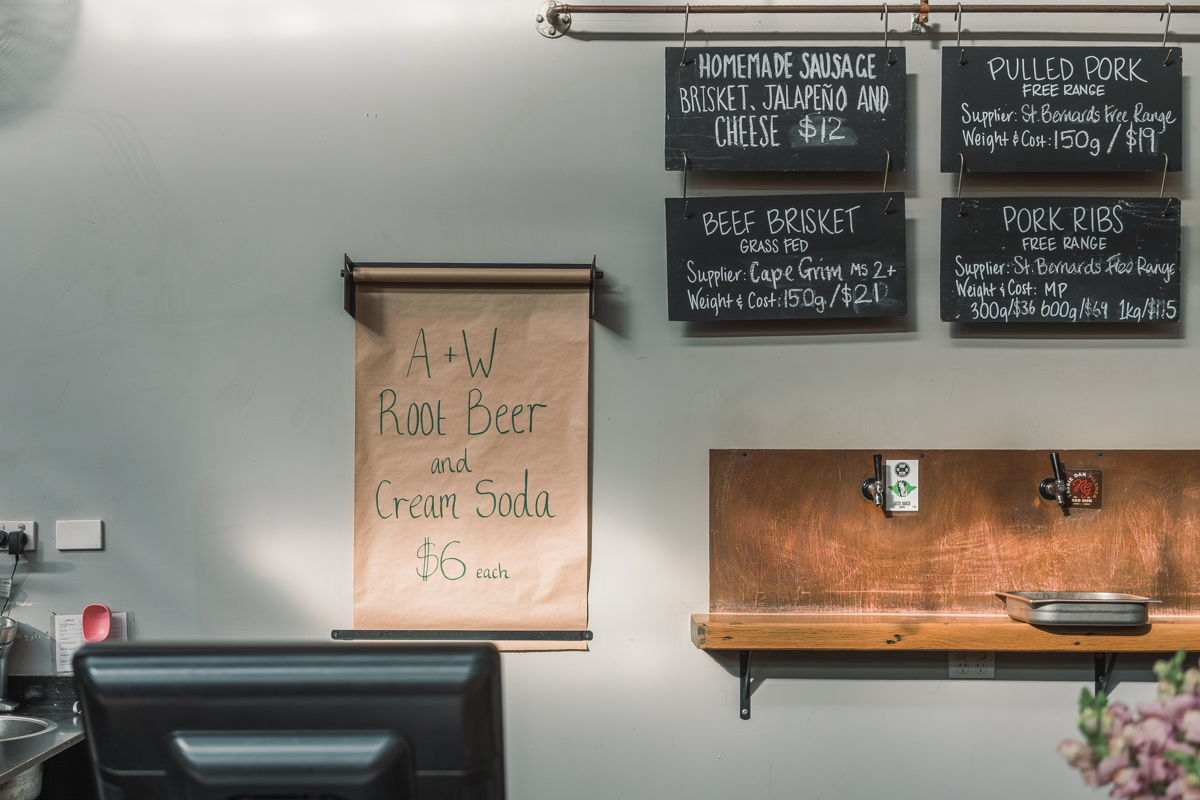 HOMEMADE SAUSAGE
BRISKET, JALAPEÑO AND
CHEESE $12
PULLED PORK
FREE RANGE
Supplier: St. Bernards Free Range
Weight & Cost: 150g / $19
BEEF BRISKET
GRASS FED
Supplier: Cape Grim MS 2+
Weight & Cost: 150g / $21
PORK RIBS
FREE RANGE
Supplier: St. Bernards Free Range
Weight & Cost: MP
300g/$36 600g/$69 1kg/$115
A + W
Root Beer
and
Cream Soda
$6 each